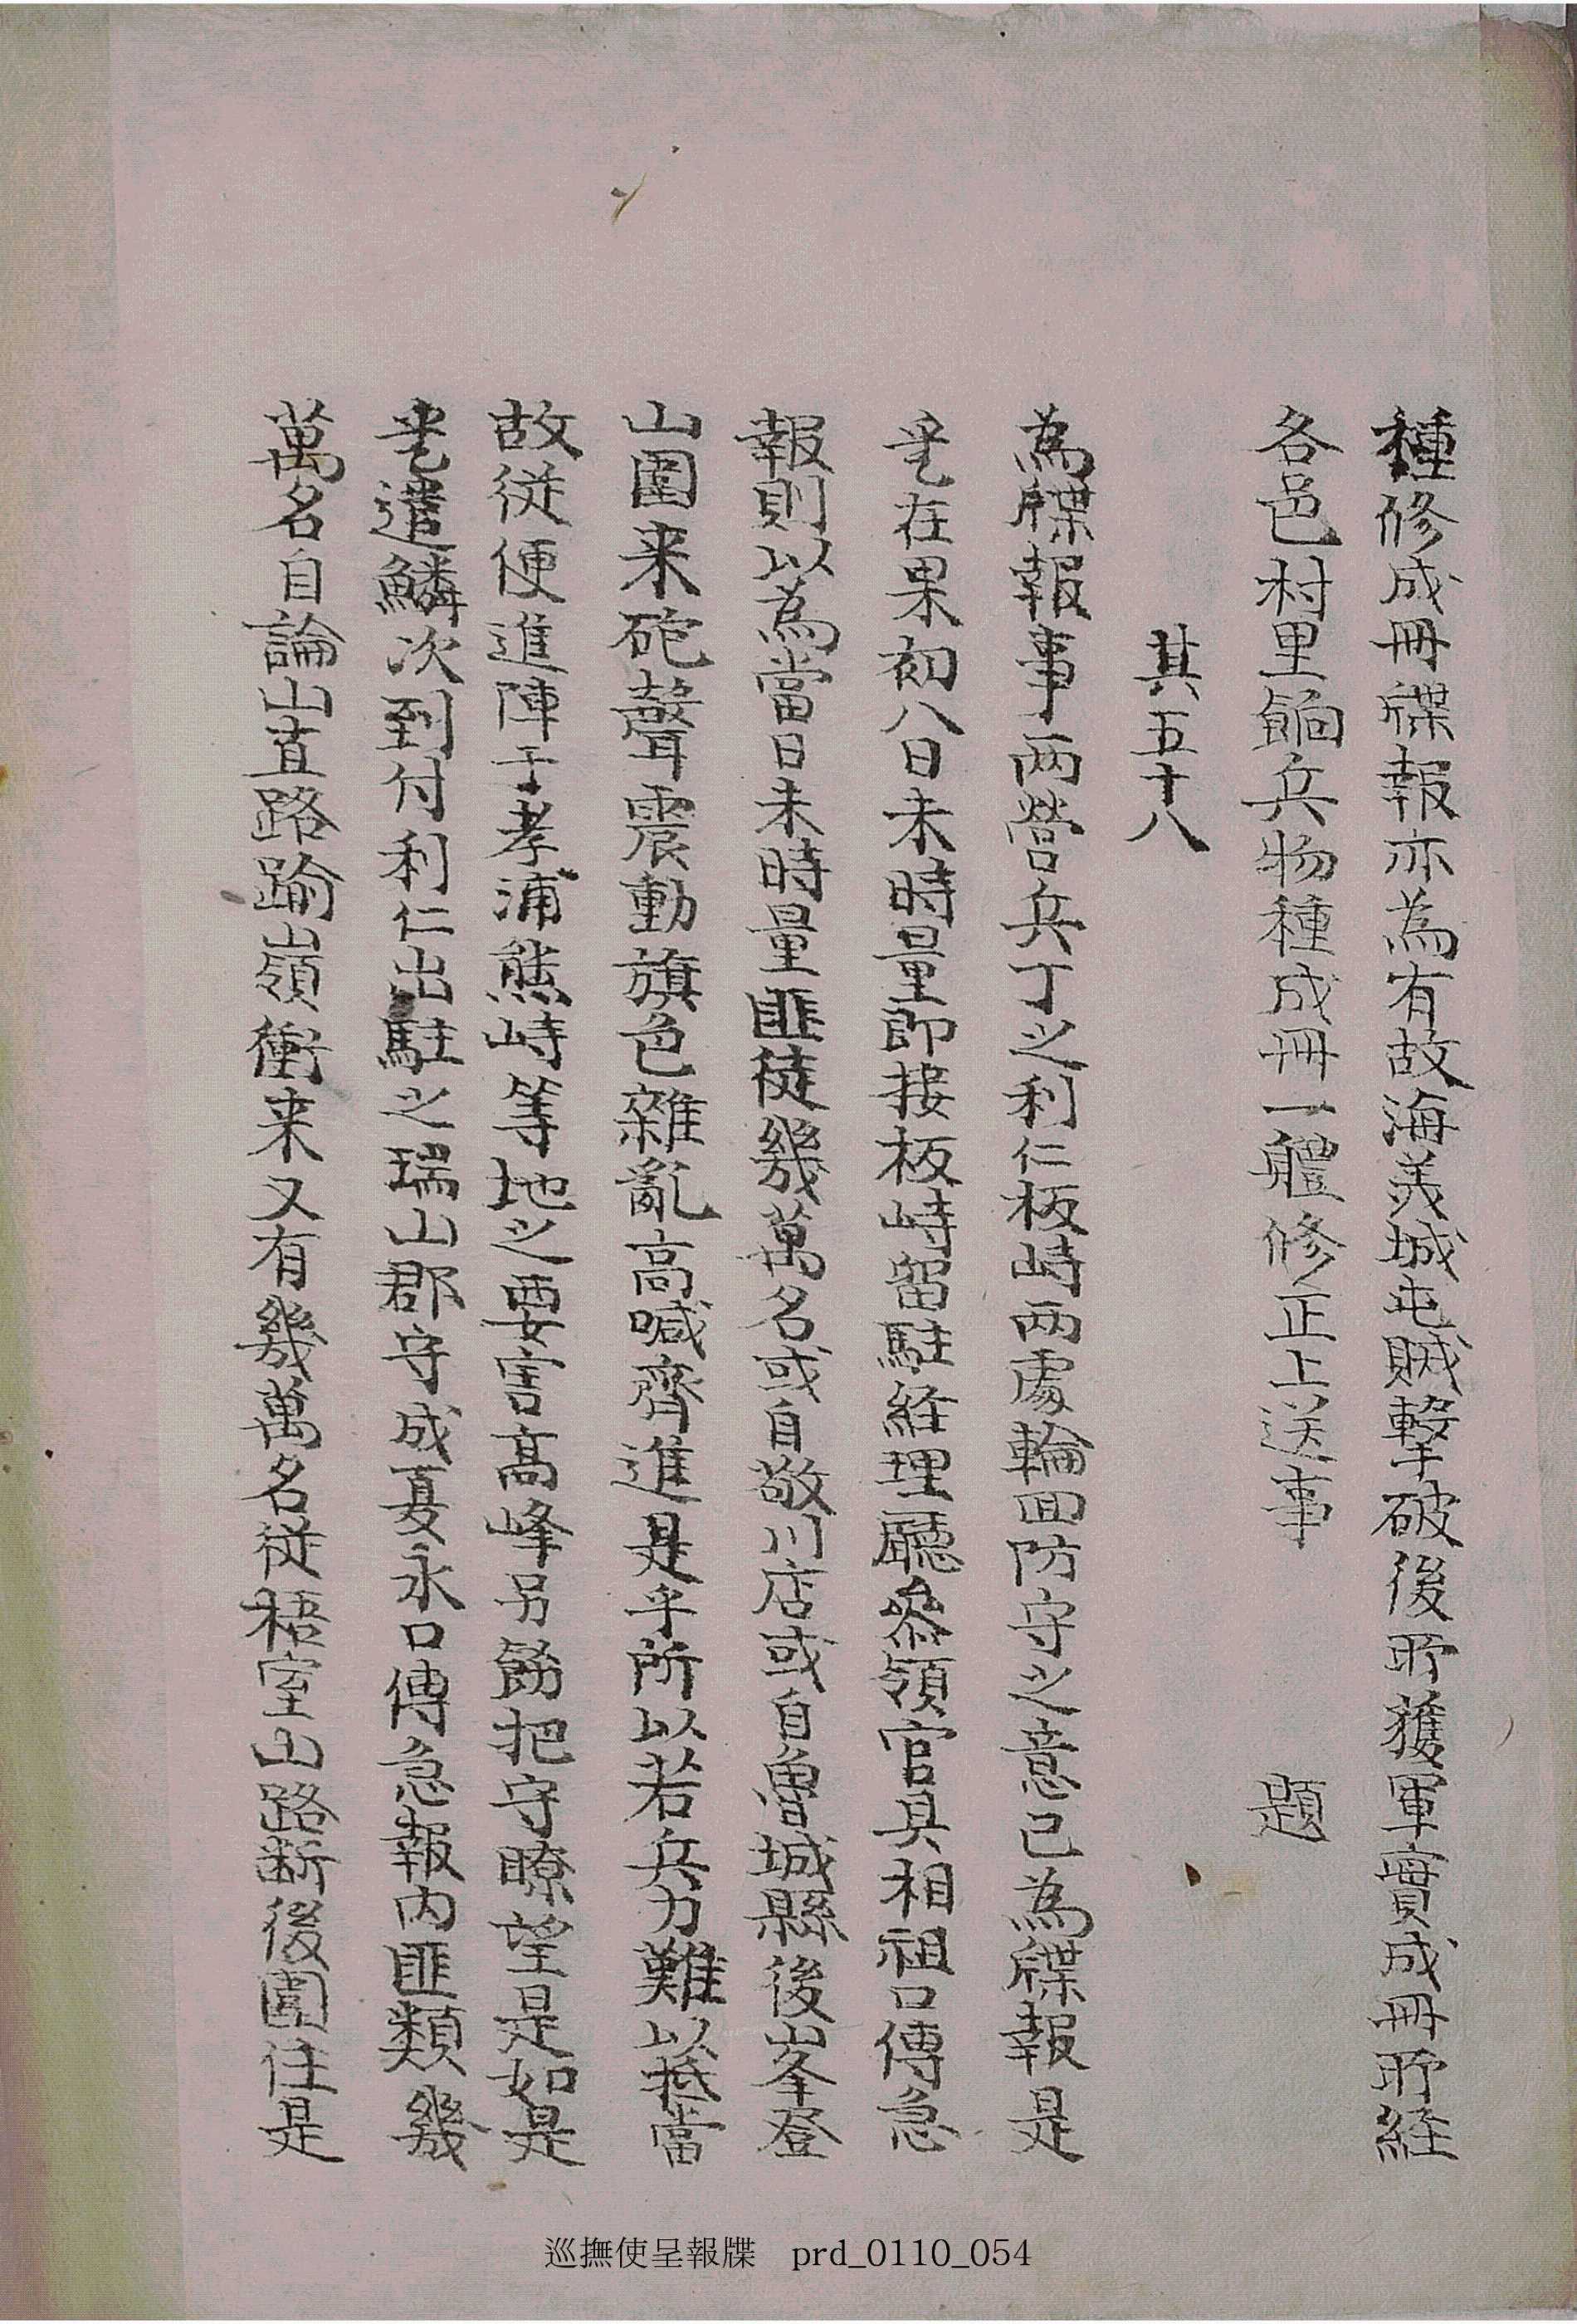 種修成冊牒報亦為有故海美城屯賊擊破後所獲軍實成冊所經
各邑村里餉兵物種成冊一軆修正上送事　題
其五十八
為牒報事兩營兵丁之利仁板峙兩處輪回防守之意已為牒報是
乎在果初八日未時量即接板峙留駐經理廳參領官具相祖口傳急
報則以為當日未時量匪徒幾萬名或自敬川店或自魯城縣後峯登
山圍来砲聲震動旗色雜亂高喊齊進是乎所以若兵力難以抵當
故從便進陣于孝浦熊峙等地之要害高峰另飭把守瞭望是如是
乎遣鱗次到付利仁出駐之瑞山郡守成夏永口傳急報內匪類幾
萬名自論山直路踰嶺衝来又有幾萬名從梧室山路斷後圍住是
巡撫使呈報牒　prd_0110_054